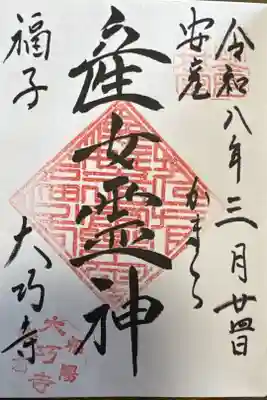 令和八年三月廿四日
安産 かまくら
産女霊神
福子 大巧寺
大巧寺